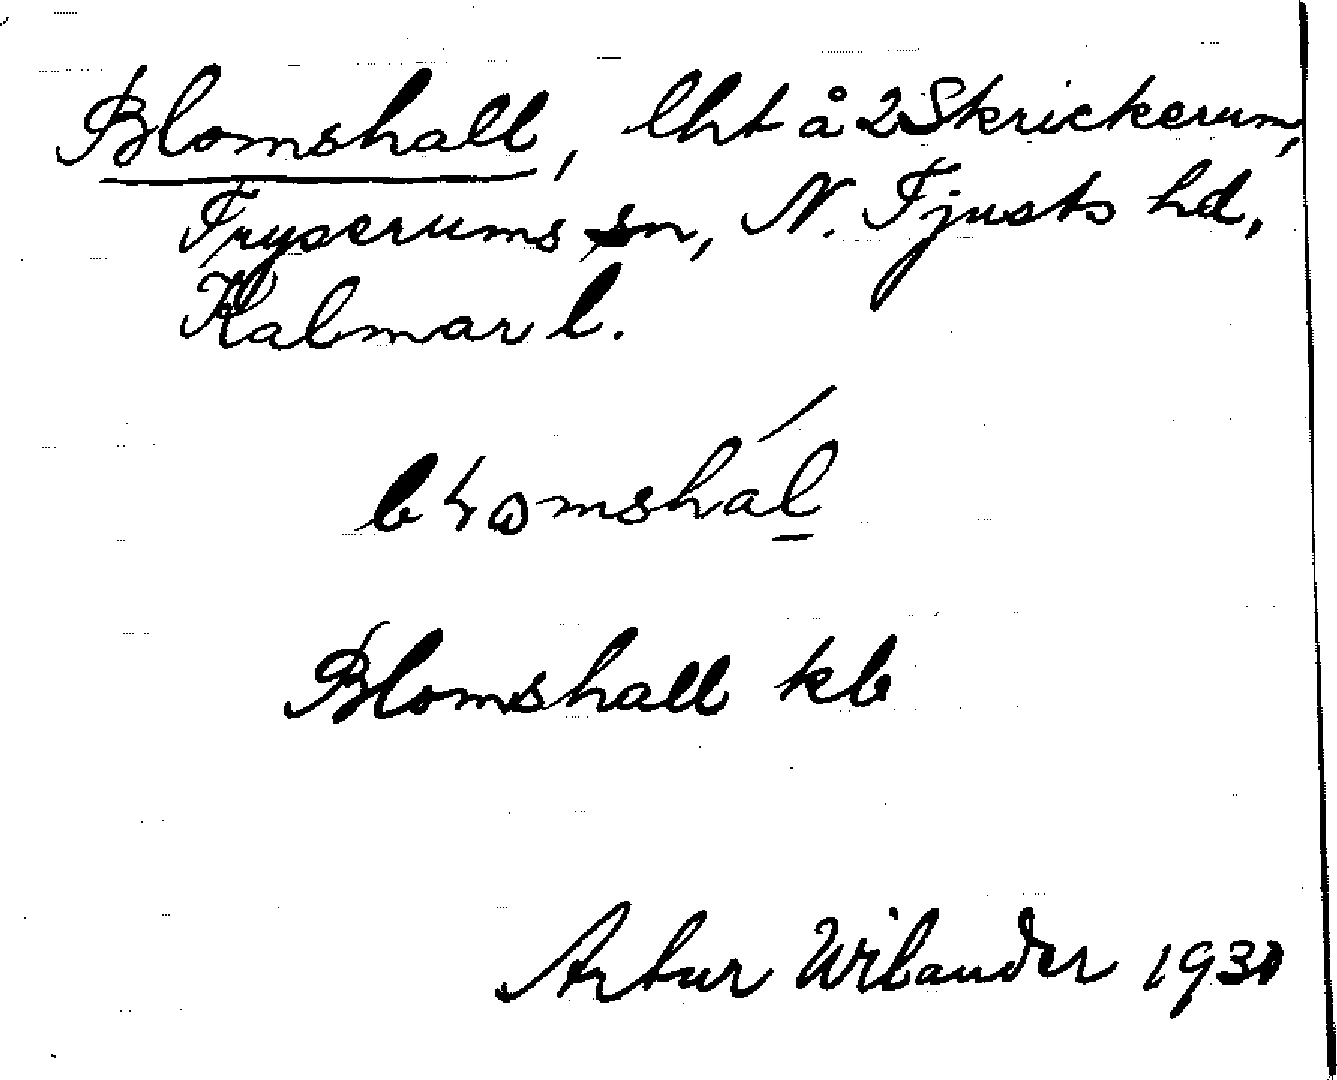 Blomshall, lht å 2 Skrickerum,
Tryserums sn, N. Tjusts hd,
Kalmar l.
Blomshall kb
Artur Wilander 193